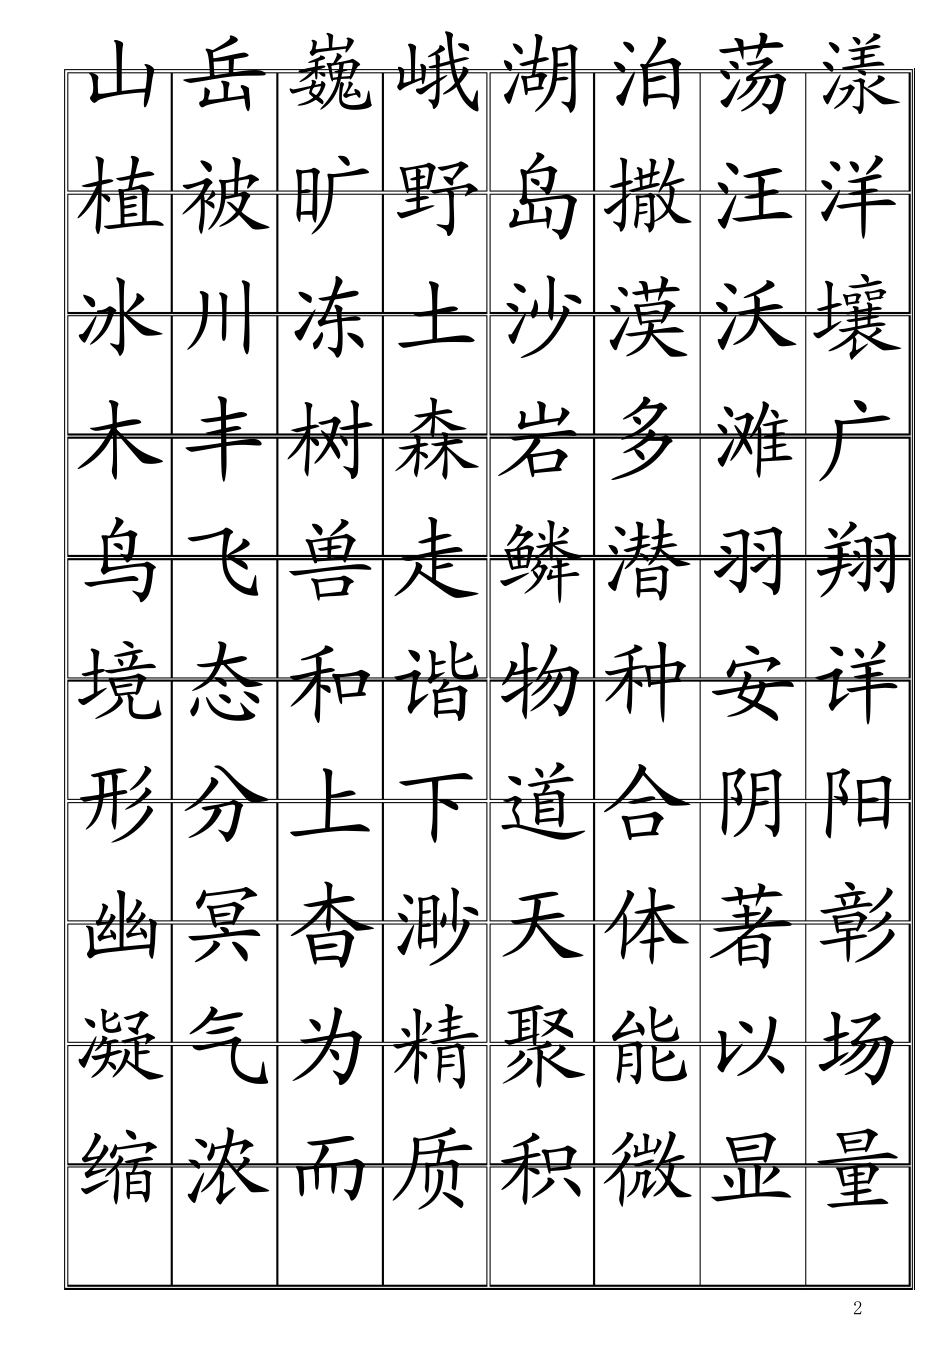 山岳巍峨湖泊荡漾
植被旷野岛撒汪洋
冰川冻土沙漠沃壤
木丰树森岩多滩广
鸟飞兽走鳞潜羽翔
境态和谐物种安详
形分上下道合阴阳
幽冥杳渺天体著彰
凝气为精聚能以场
缩浓而质积微显量
2